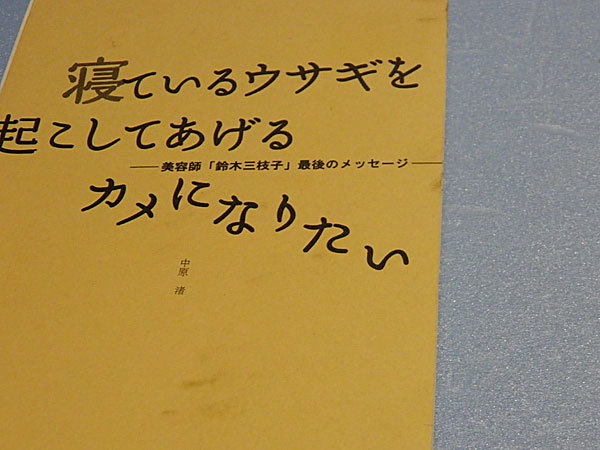 寝ているウサギを
起こしてあげる
――美容師「鈴木三枝子」最後のメッセージ――
カメになりたい
中原 渚